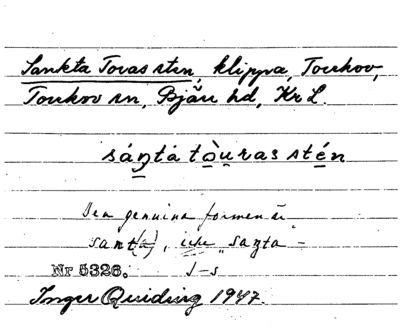 Sankta Tovas sten, klippa, Torekov,
Torekov sn, Bjäre hd, Kr L.
sáŋ̱tá tò̱u̱ras sté̱n
Den genuina formen är
sant(a), icke "saŋta –
Nr 5326. J–s
Inger Quiding 1947.